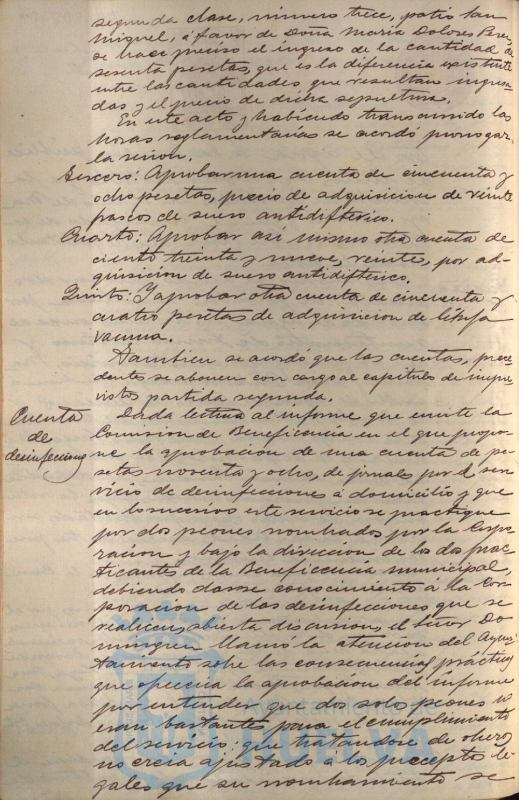 segunda clase, número trece, patio San
Miguel, á favor de Doña Maria Dolores Perez,
se hace preciso el ingreso de la cantidad de
sesenta pesetas, que es la diferencia existente
entre las cantidades que resultan ingresa-
das y el precio de dicha sepultura.
En este acto y habiendo transcurrido las
horas reglamentarias se acordó prorrogar
la sesion.
Tercero: Aprobar una cuenta de cincuenta y
ocho pesetas, precio de adquisicion de veinte
frascos de suero antidifterico.
Cuarto: Aprobar asi mismo otra cuenta de
ciento treinta y nueve, veinte, por ad-
quisicion de suero antidifterico.
Quinto: Y aprobar otra cuenta de cincuenta y
cuatro pesetas de adquisicion de linfa
vacuna.
Tambien se acordó que las cuentas, prece-
dentes se abonen con cargo al capitulo de impre-
vistos partida segunda.
Cuenta
de
desinfecciones
Dada lectura al informe que emite la
Comision de Beneficencia en el que propo-
ne la aprobacion de una cuenta de pe-
setas noventa y ocho, de jornales por el ser-
vicio de desinfecciones á domicilio y que
en lo sucesivo este servicio se practique
por dos peones nombrados por la Corpo-
racion y bajo la direccion de los dos prac-
ticantes de la Beneficencia municipal,
debiendo darse conocimiento á la Cor-
poracion de las desinfecciones que se
realicen, abierta discusion, el Señor Do-
minguez llamó la atencion del Ayun-
tamiento sobre las consecuencias prácticas
que ofrecia la aprobacion del informe
por entender que dos solo peones no
eran bastantes para el cumplimiento
del servicio: que tratándose de obreros
no creia ajustado á los preceptos le-
gales que su nombramiento se